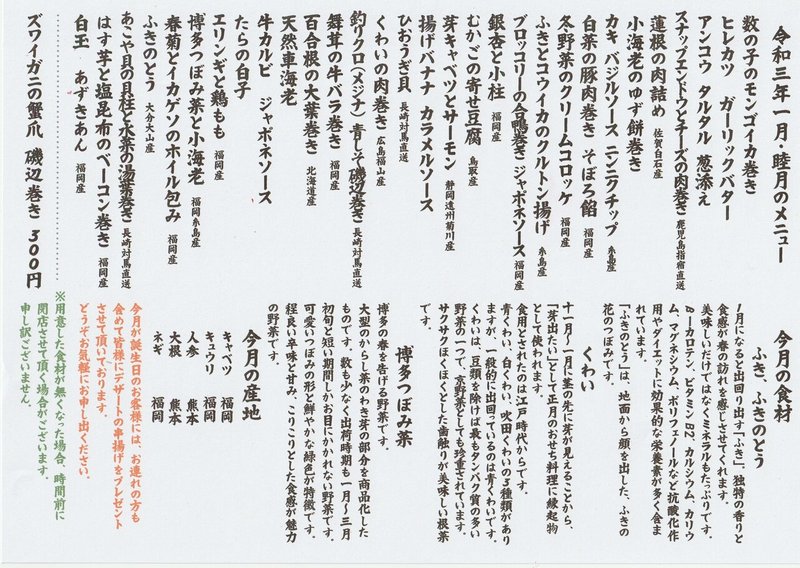 令和三年一月・睦月のメニュー
数の子のモンゴイカ巻き
ヒレカツ ガーリックバター
アンコウ タルタル 葱添え
スナップエンドウとチーズの肉巻き 鹿児島指宿直送
蓮根の肉詰め 佐賀白石産
小海老のゆず餅巻き
カキ バジルソース ニンニクチップ 糸島産
白菜の豚肉巻き そぼろ餡 福岡産
冬野菜のクリームコロッケ 福岡産
ふきとコウイカのクルトン揚げ 糸島産
ブロッコリーの合鴨巻き ジャポネソース 福岡産
銀杏と小柱 福岡産
むかごの寄せ豆腐 鳥取産
芽キャベツとサーモン 静岡遠州菊川産
揚げバナナ カラメルソース
ひおうぎ貝 長崎対馬直送
くわいの肉巻き 広島福山産
釣りクロ（メジナ）青しそ磯辺巻き 長崎対馬直送
舞茸の牛バラ巻き 福岡産
百合根の大葉巻き 北海道産
天然車海老
牛カルビ ジャポネソース
たらの白子
エリンギと鶏もも 福岡産
博多つぼみ菜と小海老 福岡糸島産
春菊とイカゲソのホイル包み 福岡産
ふきのとう 大分大山産
あこや貝の貝柱と水菜の湯葉巻き 長崎対馬直送
はす芋と塩昆布のベーコン巻き 福岡産
白玉 あずきあん 福岡産
ズワイガニの蟹爪 磯辺巻き 300円
今月の食材
ふき、ふきのとう
1月になると出回り出す「ふき」、独特の香りと
食感が春の訪れを感じさせてくれます。
美味しいだけではなくミネラルもたっぷりです。
βーカロテン、ビタミンB2、カルシウム、カリウ
ム、マグネシウム、ポリフェノールなど抗酸化作
用やダイエットに効果的な栄養素が多く含ま
れています。
「ふきのとう」は、地面から顔を出した、ふきの
花のつぼみです。
くわい
十一月〜一月に茎の先に芽が見えることから、
「芽出たい」として正月のおせち料理に縁起物
として使われます。
食用とされたのは江戸時代からです。
青くわい、白くわい、吹田くわいの3種類があり
ますが、一般的に出回っているのは青くわいです。
くわいは、豆類を除けば最もタンパク質の多い
野菜の一つで、京野菜としても珍重されています。
サクサクほくほくとした歯触りが美味しい根菜
です。
博多つぼみ菜
博多の春を告げる野菜です。
大型のからし菜のわき芽の部分を商品化した
ものです。数も少なく出荷時期も一月〜三月
初旬と短い期間しかお目にかかれない野菜です。
可愛いつぼみの形と鮮やかな緑色が特徴です。
程良い辛味と甘み、こりこりとした食感が魅力
の野菜です。
今月の産地
キャベツ 福岡
キュウリ 福岡
人参 熊本
大根 熊本
ネギ 福岡
今月が誕生日のお客様には、お連れの方も
含めて皆様にデザートの串揚げをプレゼント
させて頂いております。
どうぞお気軽にお申し出ください。
※用意した食材が無くなった場合、時間前に
閉店させて頂く場合がございます。
申し訳ございません。